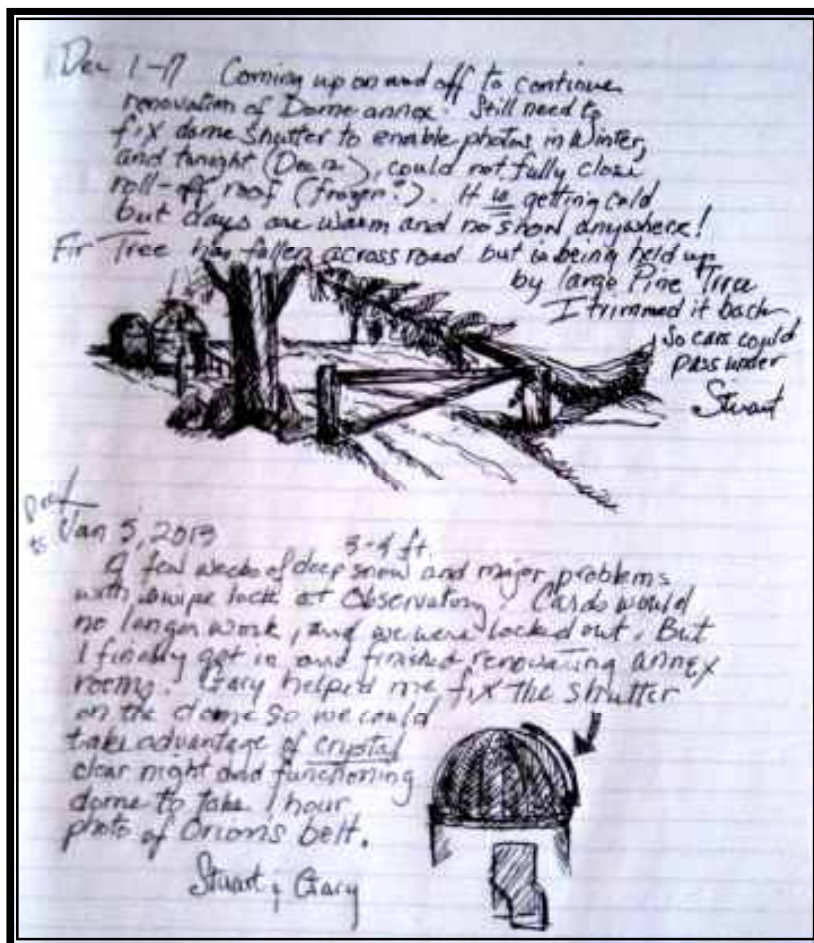 Dec 1-17 Coming up on and off to continue
renovation of Dome annex. Still need to
fix dome shutter to enable photos in Winter,
and tonight (Dec 12), could not fully close
roll-off roof (frozen?). It is getting cold
but days are warm and no snow anywhere!
Fir Tree has fallen across road but is being held up
by large Pine Tree
I trimmed it back
so cars could
pass under
Stuart
to Jan 5, 2013
3-4 ft.
A few weeks of deep snow and major problems
with swipe lock at Observatory. Cards would
no longer work, and we were locked out. But
I finally got in and finished renovating annex
rooms. Gary helped me fix the shutter
on the dome so we could
take advantage of crystal
clear night and functioning
dome to take 1 hour
photo of Orions belt.
Stuart & Gary